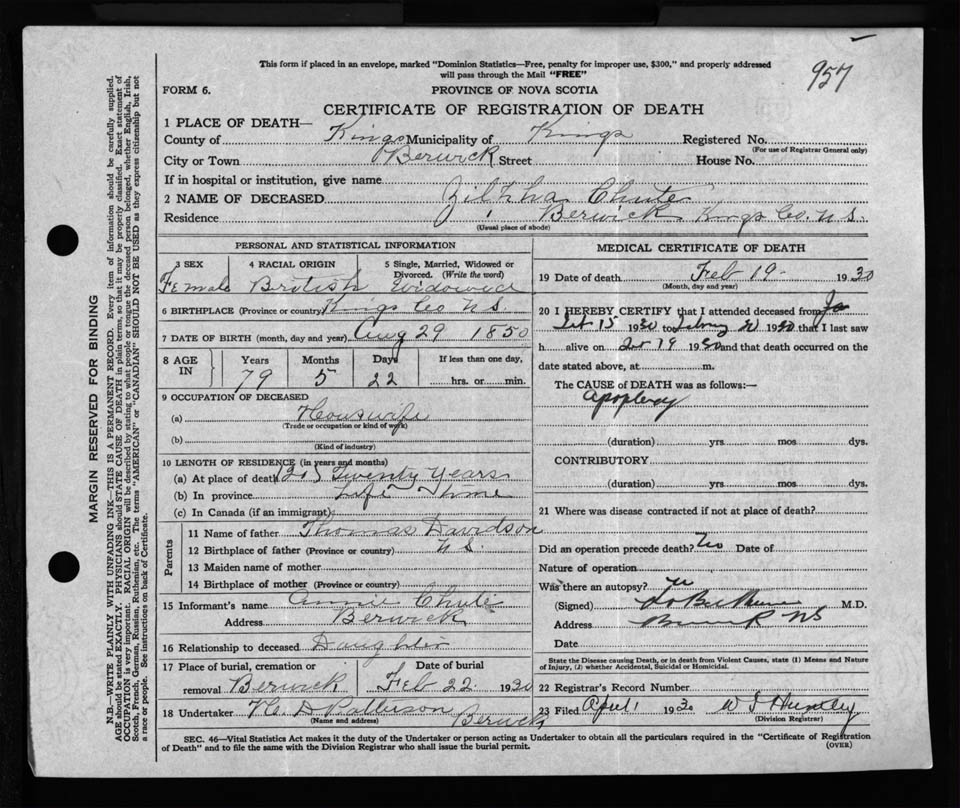 957
This form if placed in an envelope, marked "Dominion Statistics—Free, penalty for improper use, $300," and properly addressed
will pass through the Mail "FREE"
FORM 6.
PROVINCE OF NOVA SCOTIA
CERTIFICATE OF REGISTRATION OF DEATH
1 PLACE OF DEATH—
County of Kings Municipality of Kings Registered No.
(For use of Registrar General only)
City or Town Berwick Street House No.
If in hospital or institution, give name
2 NAME OF DECEASED Zilpha Chute
Residence Berwick Kings Co. N.S.
(Usual place of abode)
PERSONAL AND STATISTICAL INFORMATION
3 SEX 4 RACIAL ORIGIN 5 Single, Married, Widowed or
Divorced. (Write the word)
Female British Widowed
6 BIRTHPLACE (Province or country) Kings Co N.S.
7 DATE OF BIRTH (month, day and year) Aug 29 1850
8 AGE IN Years Months Days If less than one day,
79 5 22 hrs. or min.
9 OCCUPATION OF DECEASED
(a) Housewife
(Trade or occupation or kind of work)
(b)
(Kind of industry)
10 LENGTH OF RESIDENCE (in years and months)
(a) At place of death Twenty Years
(b) In province Life Time
(c) In Canada (if an immigrant)
Parents
11 Name of father Thomas Davidson
12 Birthplace of father (Province or country) N.S.
13 Maiden name of mother
14 Birthplace of mother (Province or country)
15 Informant's name Annie Chute
Address Berwick
16 Relationship to deceased Daughter
17 Place of burial, cremation or Date of burial
removal Berwick Feb 22 1930
18 Undertaker D Patterson Berwick
(Name and address)
MEDICAL CERTIFICATE OF DEATH
19 Date of death Feb 19- 1930
(Month, day and year)
20 I HEREBY CERTIFY that I attended deceased from
15 1930 to 1930 that I last saw
h alive on 19 1930 and that death occurred on the
date stated above, at m.
The CAUSE of DEATH was as follows:—
Apoplexy
(duration) yrs mos dys.
CONTRIBUTORY
(duration) yrs. mos dys.
21 Where was disease contracted if not at place of death?
Did an operation precede death? No Date of
Nature of operation
Was there an autopsy?
(Signed) M.D.
Address Berwick NS
Date
State the Disease causing Death, or in death from Violent Causes, state (1) Means and Nature
of Injury, (2) whether Accidental, Suicidal or Homicidal.
22 Registrar's Record Number
23 Filed April 1 1930 W S Huntley
(Division Registrar)
SEC. 46—Vital Statistics Act makes it the duty of the Undertaker or person acting as Undertaker to obtain all the particulars required in the "Certificate of Registration
of Death" and to file the same with the Division Registrar who shall issue the burial permit.
(OVER)
MARGIN RESERVED FOR BINDING
N.B.—WRITE PLAINLY WITH UNFADING INK—THIS IS A PERMANENT RECORD. Every item of information should be carefully supplied.
AGE should be stated EXACTLY. PHYSICIANS should STATE CAUSE OF DEATH in plain terms, so that it may be properly classified. Exact statement of
OCCUPATION is very important. RACIAL ORIGIN will be described by stating to what people or tongue the deceased person belonged, whether English, Irish,
Scotch, French, German, Russian, Ruthenian, etc. The terms "AMERICAN" or "CANADIAN" SHOULD NOT BE USED as they express citizenship but not
a race or people. See instructions on back of Certificate.